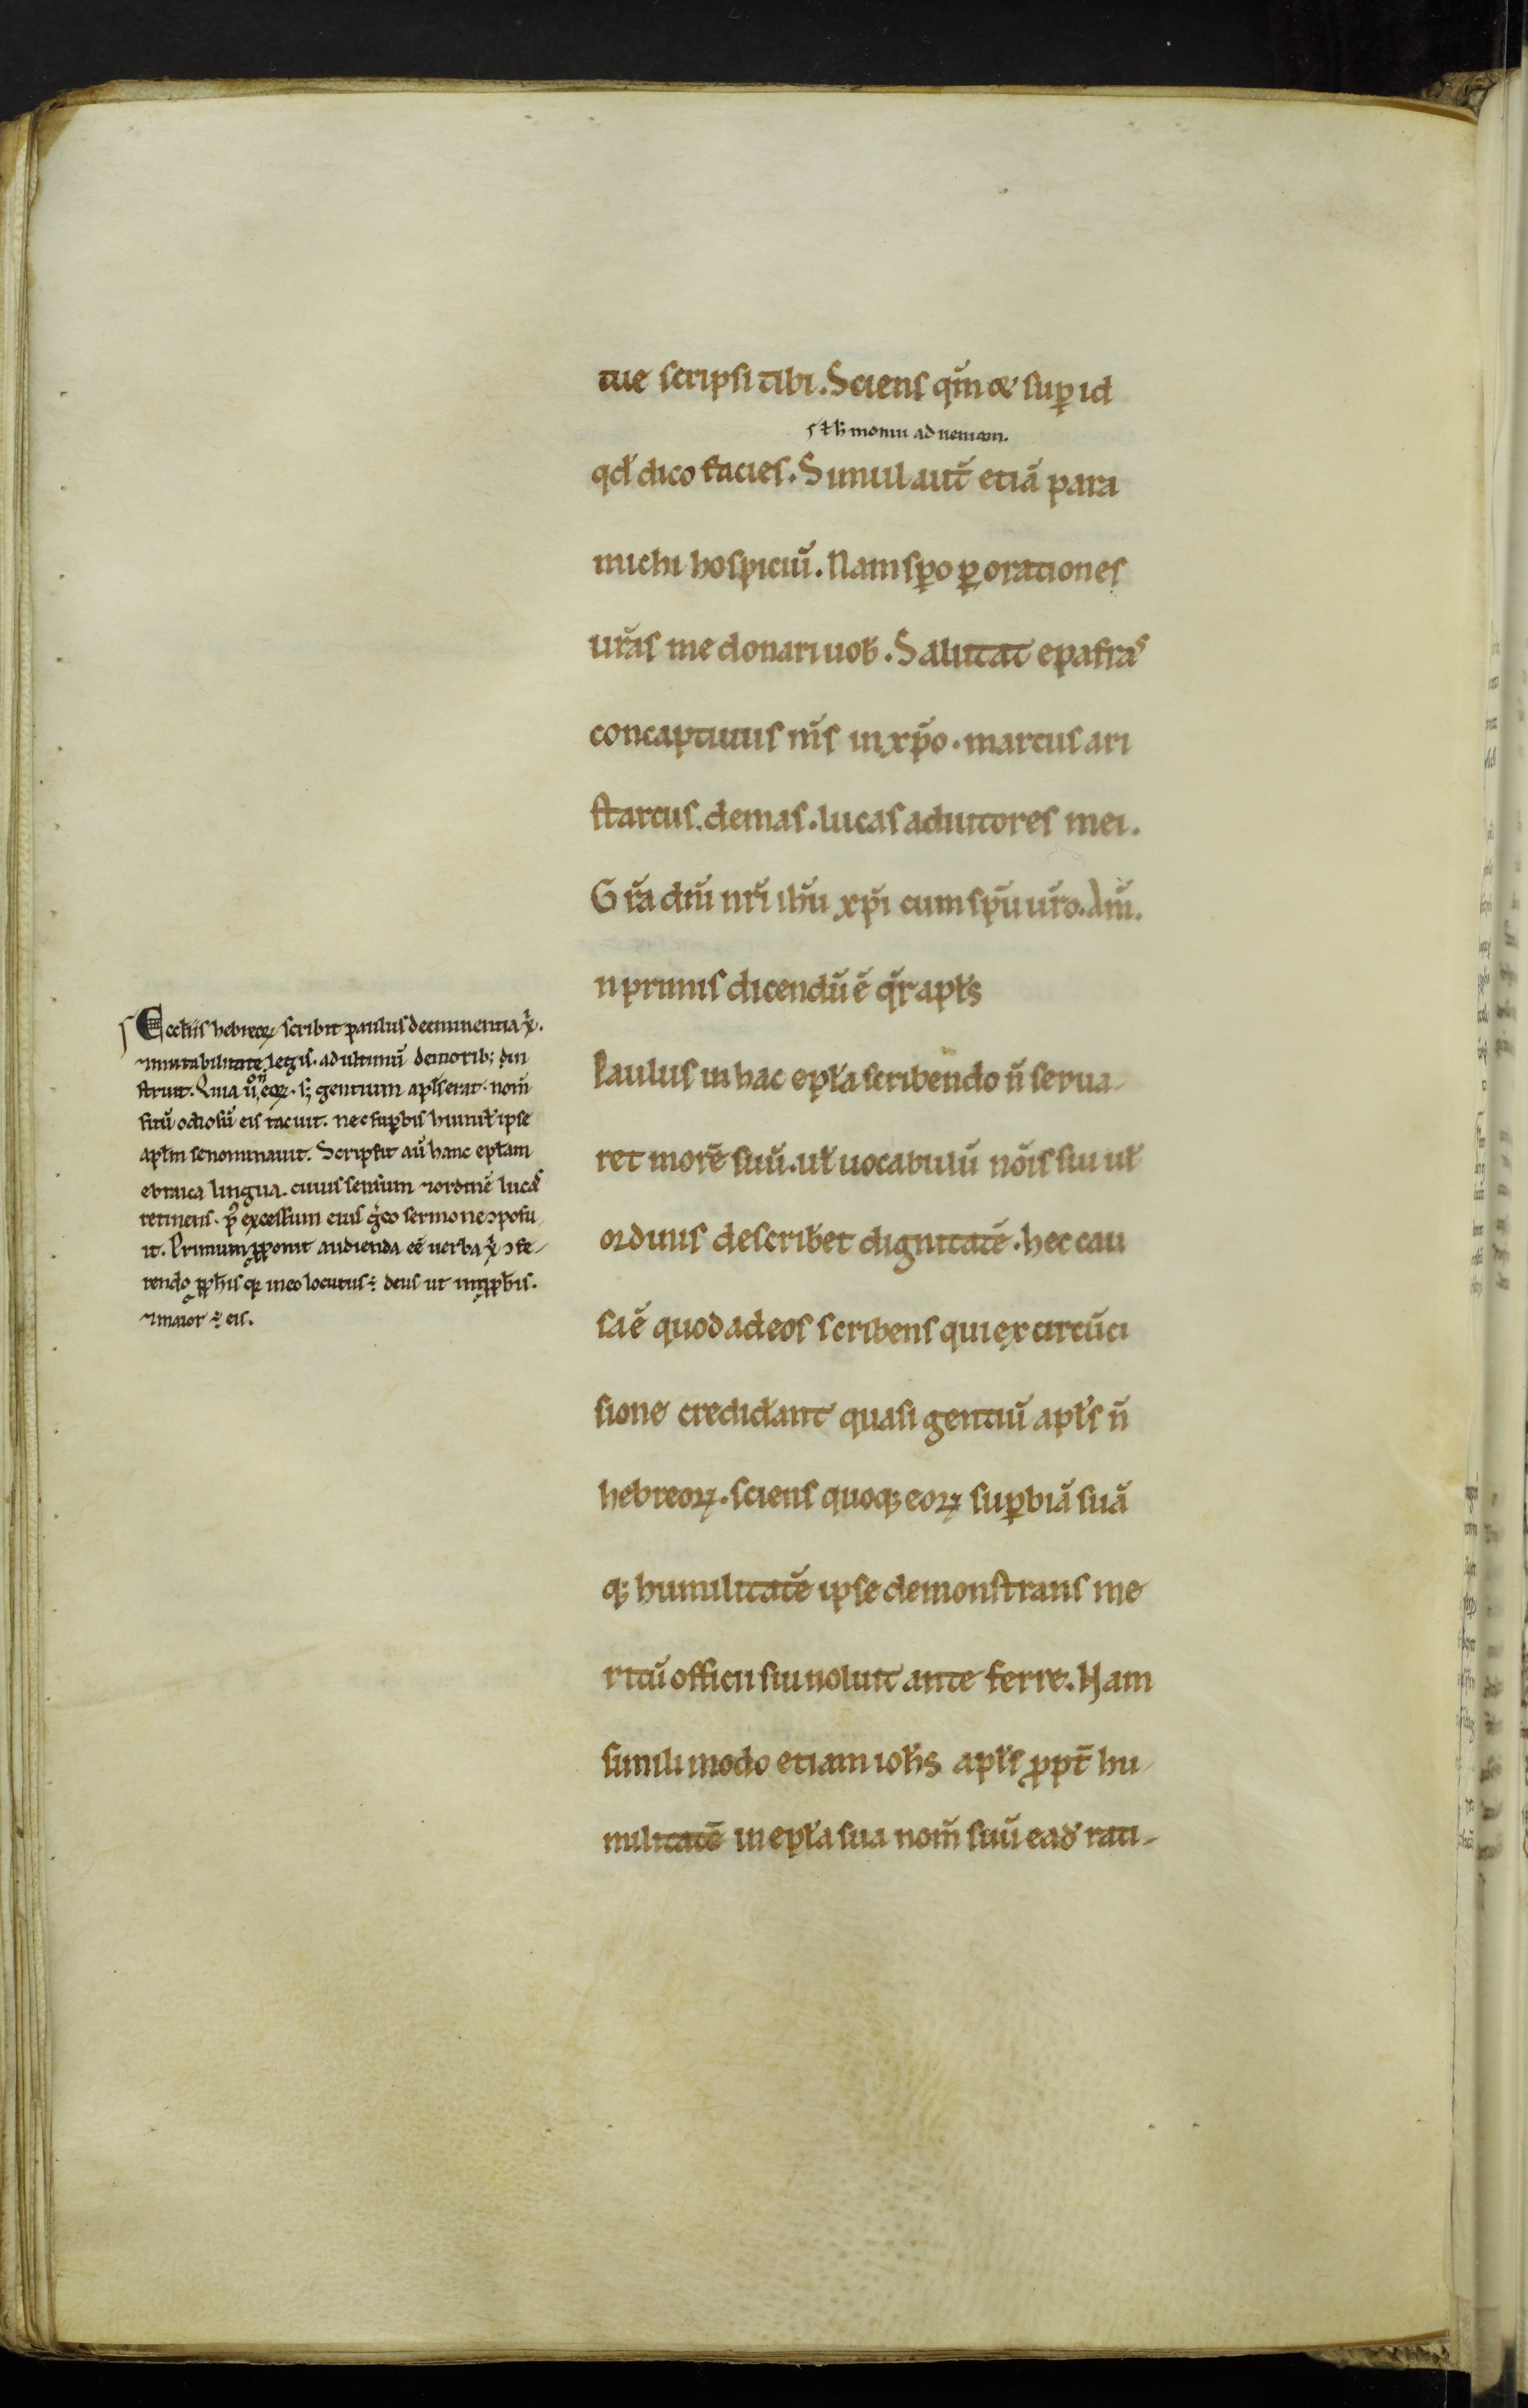 tue scripsi tibi. Sciens qm̄ & sup̱ id
qd̄ dico facies. Simul aut̄ etiā para
michi hospiciū. Nam sp̱o p̱ orationes
ur̄as me donari uob̄. Salutat epafras
concaptiuus nr̄s in xp̄o. marcus ari
starcus. demas. lucas adiutores mei.
Gr̄a dn̄i nr̄i ih̄u xp̄i cum sp̄u ur̄o. Am̄.
n primis dicendū ē q̄r apl̄s
Paulus in hac epl̄a scribendo n̄ serua-
ret morē suū. ul̄ uocabulū nōis sui ul̄
ordinis describ̄et dignitatē. hec cau
sa ē quod ad eos scribens qui ex circūci
sione credid̄ant quasi gentiū apl̄s n̄
hebreoꝝ. sciens quoqꝫ eoꝝ sup̱biā suā
qꝫ humilitatē ipse demonstrans me
ritū officii sui noluit ante ferre. Nam
simili modo etiam ioh̄s apl̄s ꝓpt̄ hu-
militatē in epl̄a sua nom̄ suū ead̄ rati-
Eccl̄iis hebreoꝝ scribit paulus de eminentia x̄.
⁊ mutabilitate legis. ad ultimū de morib; ꝯin
struit. Quia n̄ eoꝝ. s; gentium apl̄s erat. nom̄
suū odiosū eis tacuit. nec sup̱bis humil̄ ipse
apl̄m se nominauit. Scripsit aū hanc epl̄am
ebraica lingua. cuius sensum ⁊ ordinē lucas
retinens. p̄ excessum eius g̊co sermone ꝯposu-
it. Primum ꝓponit audienda eē uerba x̄ ꝯfe-
rendo ꝓph̄is qꝛ in eo locutus ÷ deus ut in ꝓph̄is.
⁊ maior ÷ eis.